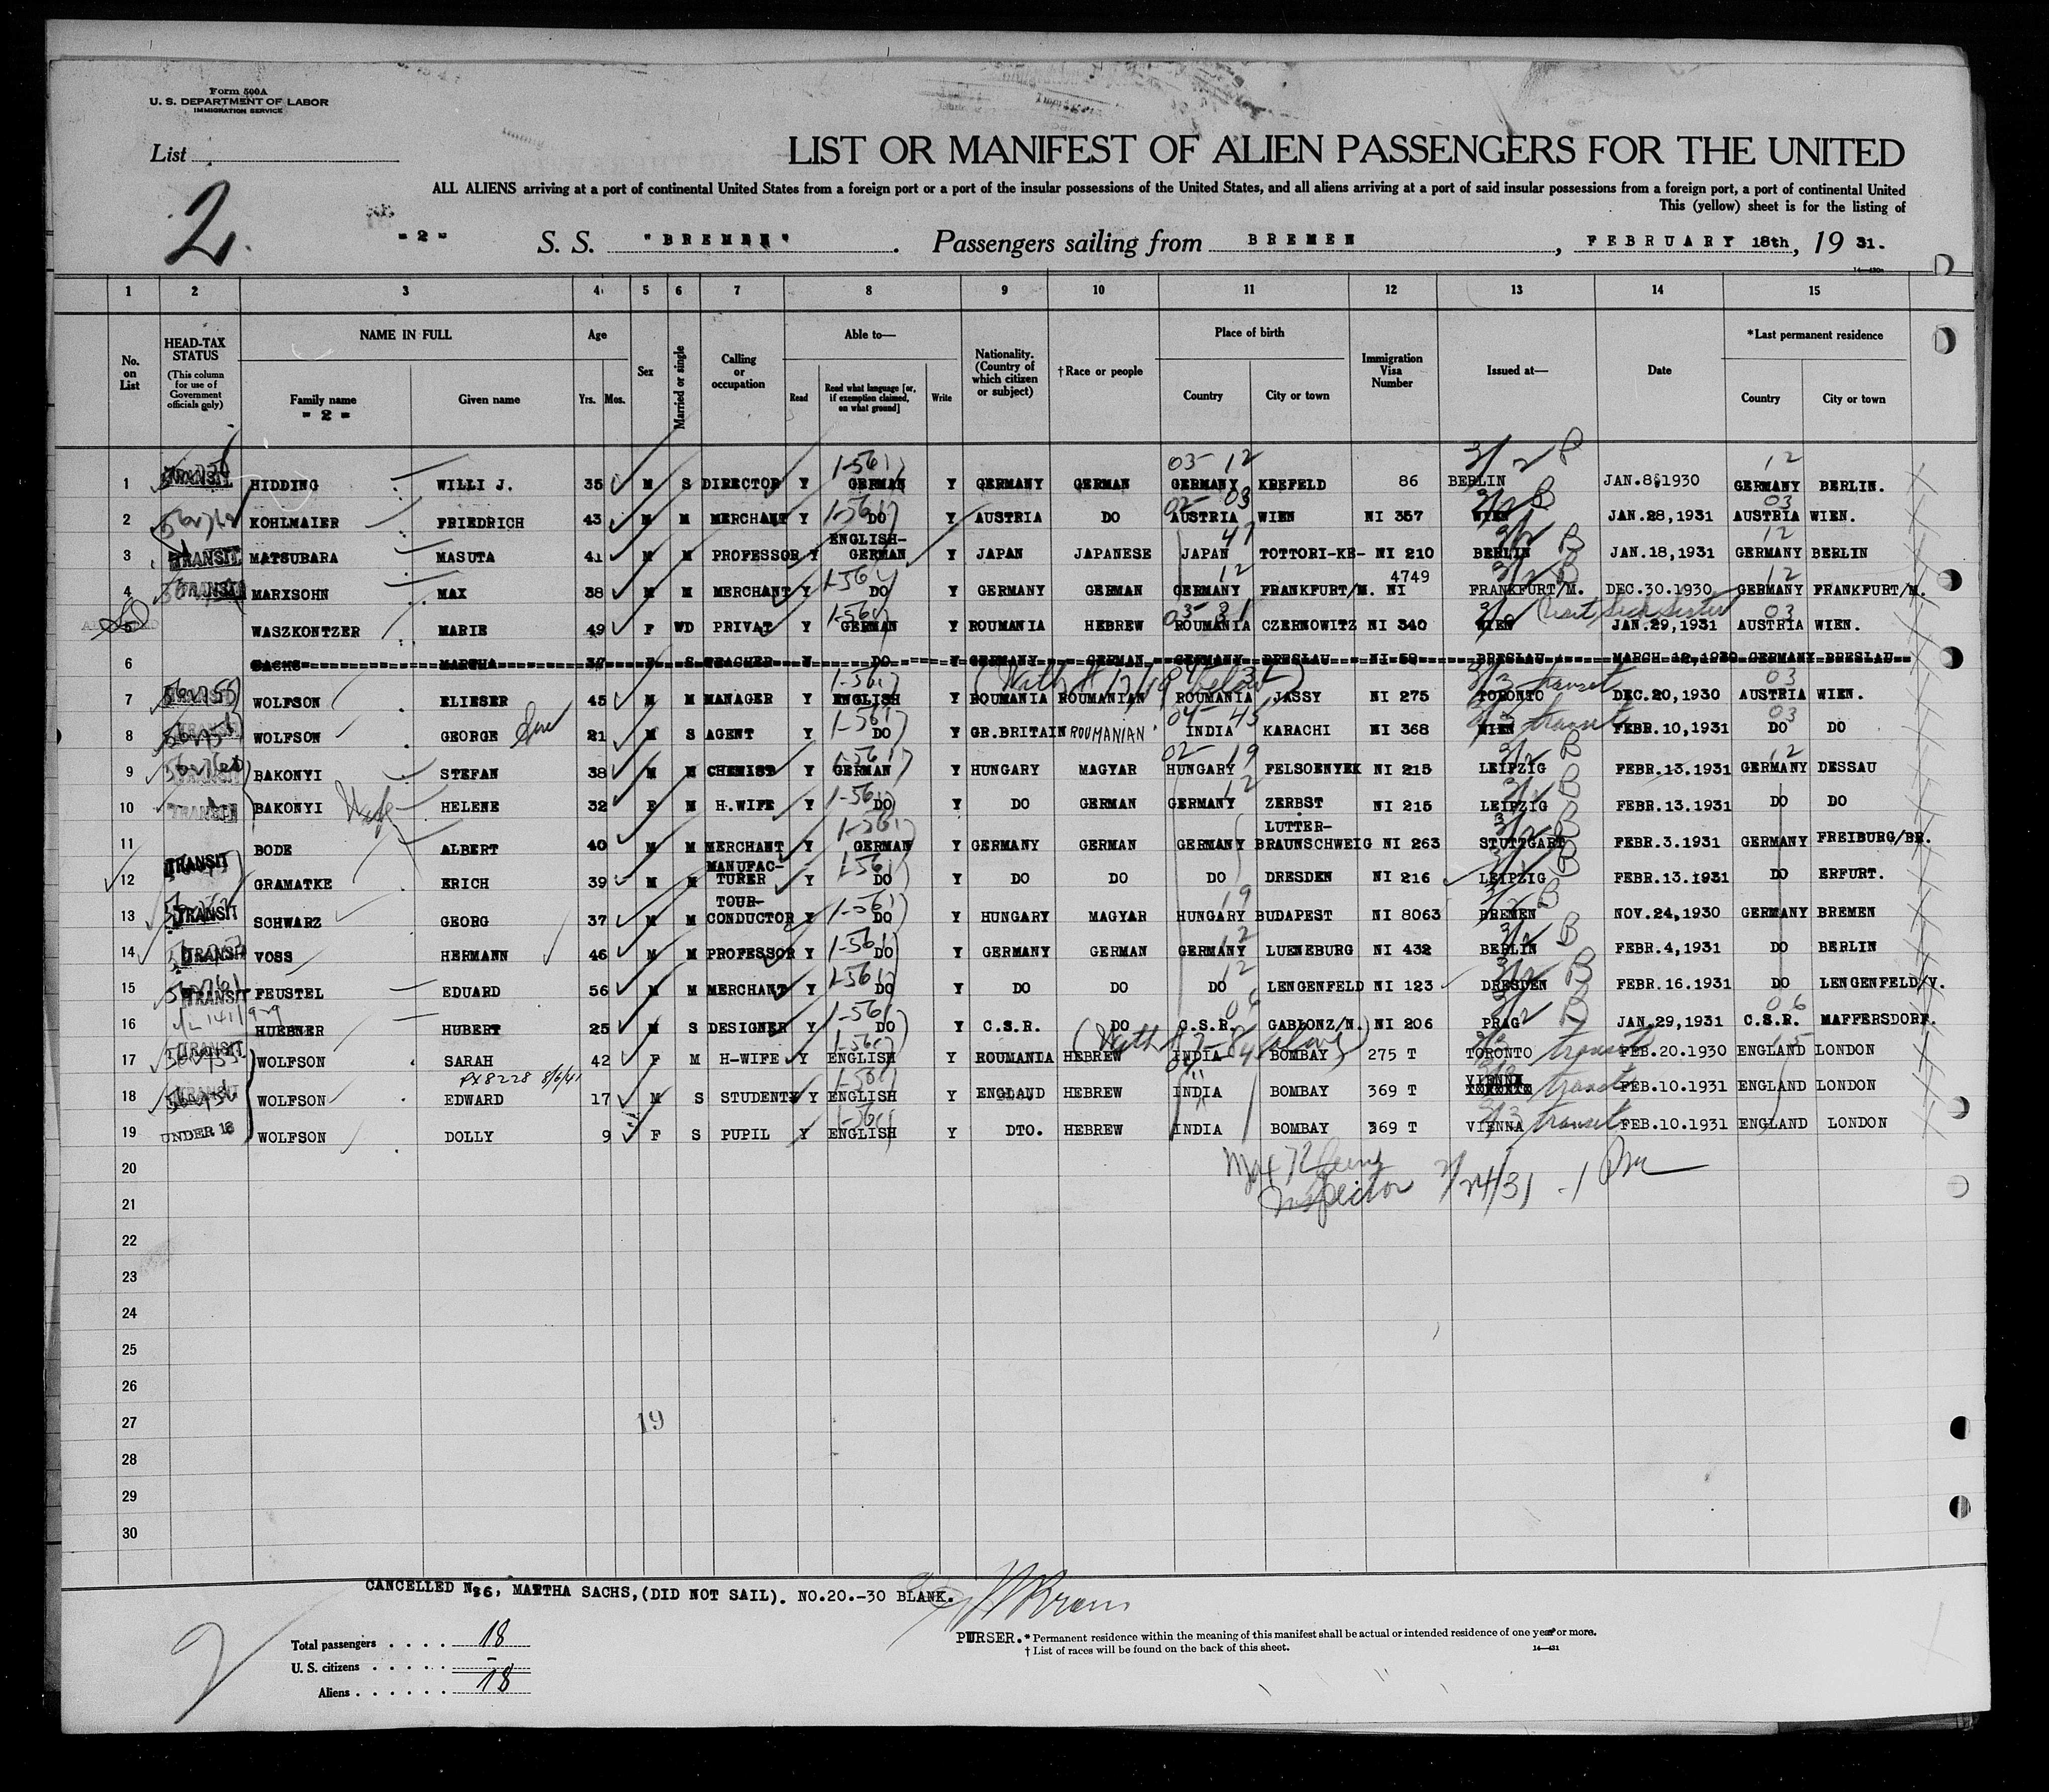 Form 500A
U. S. DEPARTMENT OF LABOR
IMMIGRATION SERVICE
List
2
LIST OR MANIFEST OF ALIEN PASSENGERS FOR THE UNITED
ALL ALIENS arriving at a port of continental United States from a foreign port or a port of the insular possessions of the United States, and all aliens arriving at a port of said insular possessions from a foreign port, a port of continental United
This (yellow) sheet is for the listing of
- 2 - S. S. "BREMEN". Passengers sailing from BREMEN, FEBRUARY 18th, 19 31.
1 2 3 4 5 6 7 8 9 10 11 12 13 14 15
No. on List
HEAD-TAX STATUS
(This column for use of Government officials only)
NAME IN FULL
Family name
- 2 -
Given name
Age
Yrs. Mos.
Sex
Married or single
Calling or occupation
Able to—
Read
Read what language [or, if exemption claimed, on what ground]
Write
Nationality. (Country of which citizen or subject)
†Race or people
Place of birth
Country
City or town
Immigration Visa Number
Issued at—
Date
*Last permanent residence
Country
City or town
1 TRANSIT HIDDING WILLI J. 35 M S DIRECTOR Y GERMAN Y GERMANY GERMAN GERMANY KREFELD 86 BERLIN JAN.8.1930 GERMANY BERLIN.
2 KOHLMAIER FRIEDRICH 43 M M MERCHANT Y DO Y AUSTRIA DO AUSTRIA WIEN NI 357 WIEN JAN.28,1931 AUSTRIA WIEN.
3 TRANSIT MATSUBARA MASUTA 41 M M PROFESSOR Y ENGLISH-GERMAN Y JAPAN JAPANESE JAPAN TOTTORI-KE- NI 210 BERLIN JAN.18,1931 GERMANY BERLIN
4 TRANSIT MARXSOHN MAX 38 M M MERCHANT Y DO Y GERMANY GERMAN GERMANY FRANKFURT/M. NI 4749 FRANKFURT/M. DEC.30.1930 GERMANY FRANKFURT/M.
5 WASZKONTZER MARIE 49 F WD PRIVAT Y GERMAN Y ROUMANIA HEBREW ROUMANIA CZERNOWITZ NI 340 WIEN (visit sick sister JAN.29,1931 AUSTRIA WIEN.
6 SACHS MARTHA 37 F S TEACHER Y DO Y GERMANY GERMAN GERMANY BRESLAU NI 59 BRESLAU MARCH 12,1930 GERMANY BRESLAU
7 WOLFSON ELIESER 45 M M MANAGER Y ENGLISH Y ROUMANIA ROUMANIAN ROUMANIA JASSY NI 275 TORONTO transit DEC.20,1930 AUSTRIA WIEN.
8 TRANSIT WOLFSON GEORGE 21 M S AGENT Y DO Y GR.BRITAIN ROUMANIAN INDIA KARACHI NI 368 WIEN transit FEBR.10,1931 DO DO
9 TRANSIT BAKONYI STEFAN 38 M M CHEMIST Y GERMAN Y HUNGARY MAGYAR HUNGARY FELSOENYEK NI 215 LEIPZIG FEBR.13.1931 GERMANY DESSAU
10 TRANSIT BAKONYI Wife HELENE 32 F M H.WIFE Y DO Y DO GERMAN GERMANY ZERBST NI 215 LEIPZIG FEBR.13.1931 DO DO
11 BODE ALBERT 40 M M MERCHANT Y GERMAN Y GERMANY GERMAN GERMANY LUTTER-BRAUNSCHWEIG NI 263 STUTTGART FEBR.3.1931 GERMANY FREIBURG/BR.
12 TRANSIT GRAMATKE ERICH 39 M M MANUFAC-TURER Y DO Y DO DO DO DRESDEN NI 216 LEIPZIG FEBR.13.1931 DO ERFURT.
13 TRANSIT SCHWARZ GEORG 37 M M TOUR-CONDUCTOR Y DO Y HUNGARY MAGYAR HUNGARY BUDAPEST NI 8063 BREMEN NOV.24,1930 GERMANY BREMEN
14 TRANSIT VOSS HERMANN 46 M M PROFESSOR Y DO Y GERMANY GERMAN GERMANY LUENEBURG NI 432 BERLIN FEBR.4,1931 DO BERLIN
15 TRANSIT FEUSTEL EDUARD 56 M M MERCHANT Y DO Y DO DO DO LENGENFELD NI 123 DRESDEN FEBR.16.1931 DO LENGENFELD/V.
16 HUEBNER HUBERT 25 M S DESIGNER Y DO Y C.S.R. DO C.S.R. GABLONZ/N. NI 206 PRAG JAN.29,1931 C.S.R. MAFFERSDORF.
17 TRANSIT WOLFSON SARAH 42 F M H-WIFE Y ENGLISH Y ROUMANIA HEBREW INDIA BOMBAY 275 T TORONTO transit FEB.20.1930 ENGLAND LONDON
18 TRANSIT WOLFSON EDWARD 17 M S STUDENT Y ENGLISH Y ENGLAND HEBREW INDIA BOMBAY 369 T VIENNA TORONTO transit FEB.10.1931 ENGLAND LONDON
19 UNDER 16 WOLFSON DOLLY 9 F S PUPIL Y ENGLISH Y DTO. HEBREW INDIA BOMBAY 369 T VIENNA transit FEB.10.1931 ENGLAND LONDON
20
Inspector 2/24/31
21
22
23
24
25
26
27
19
28
29
30
CANCELLED No6, MARTHA SACHS,(DID NOT SAIL). NO.20.-30 BLANK.
PURSER.
* Permanent residence within the meaning of this manifest shall be actual or intended residence of one year or more.
† List of races will be found on the back of this sheet.
14—431
Total passengers . . . . 18
U. S. citizens . . . . . . -
Aliens . . . . . . 18
2